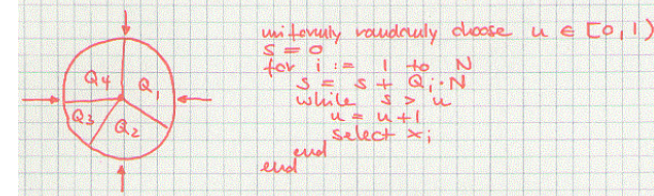 Q4
Q1
Q3
Q2
uniformly randomly choose u ∈ [0,1)
s = 0
for i := 1 to N
s = s + Qi·N
while s > u
u = u+1
select xi
end
end